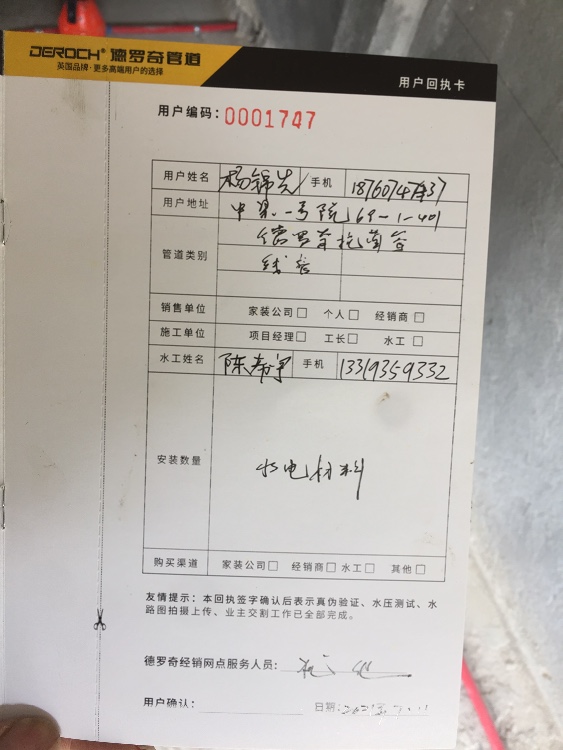 DEROCH® 德罗奇管道
英国品牌·更多高端用户的选择
用户回执卡
用户编码：0001747
用户姓名 杨锦先 手机
用户地址 中梁一号院 69-1-401
德罗奇抗菌管
管道类别
线管
销售单位 家装公司□ 个人□ 经销商□
施工单位 项目经理□ 工长□ 水工□
水工姓名 陈希宇 手机 13319359332
安装数量 水电材料
购买渠道 家装公司□ 经销商□ 水工□ 其他□
友情提示：本回执签字确认后表示真伪验证、水压测试、水
路图拍摄上传、业主交割工作已全部完成。
德罗奇经销网点服务人员：
用户确认： 日期：